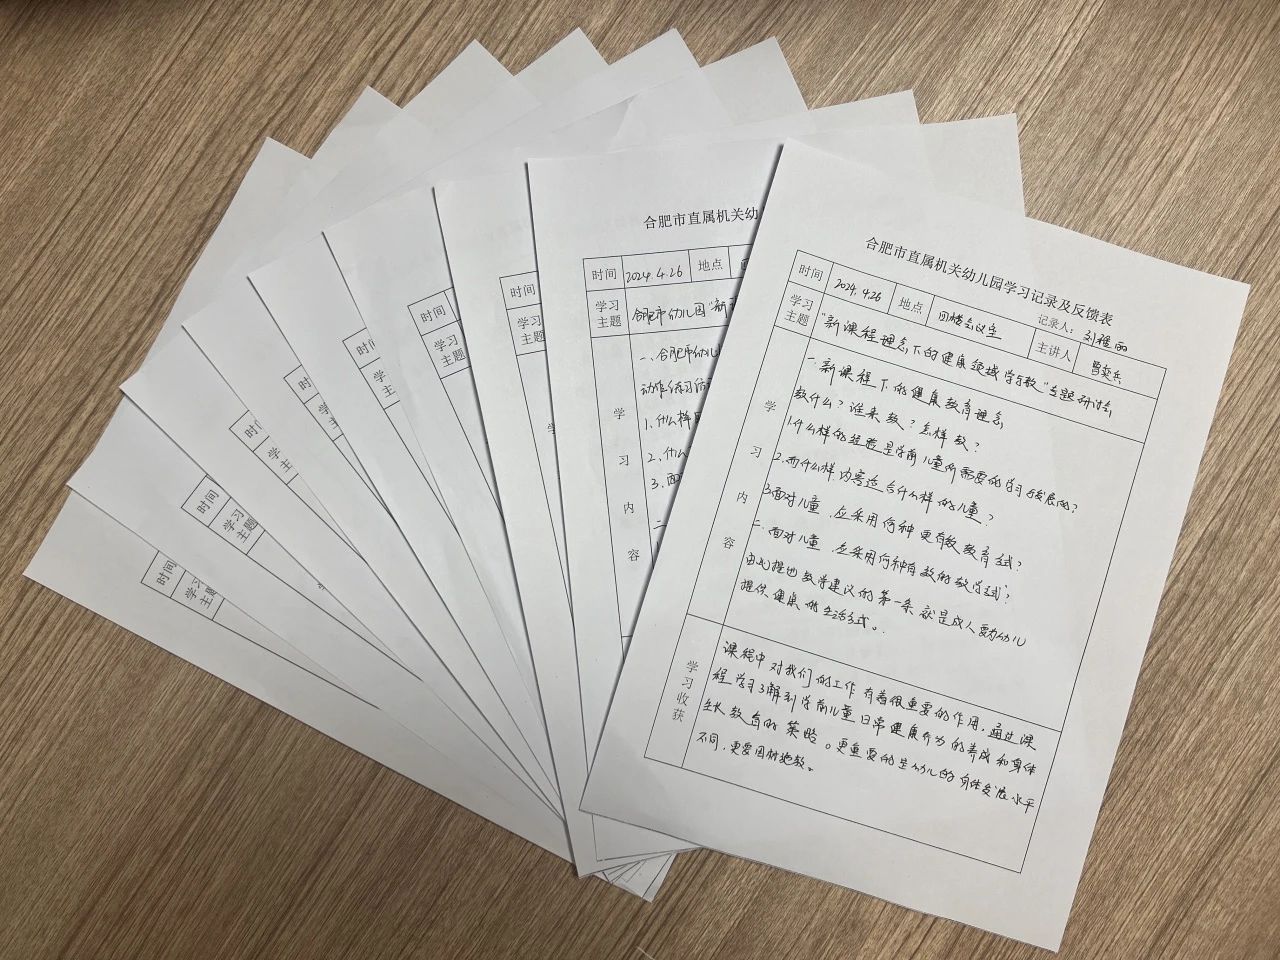 合肥市直属机关幼儿园学习记录及反馈表
记录人：刘稳丽
时间 2024.4.26 地点 四楼会议室 主讲人
学习主题 "新课程理念下的健康领域学与教"专题研讨会
学习内容
一.新课程下的健康教育理念
教什么？谁来教？怎样教？
1.什么样的经验是学前儿童所需要的学习与发展的？
2.而什么样内容适合什么样的儿童？
3.面对儿童，应采用何种更有效教育方式？
二.面对儿童，应采用何种有效的教学方式？
由此提出教学建议的第一条就是成人要为幼儿
提供健康的生活方式。
学习收获
课程中对我们的工作有着很重要的作用，通过课
程学习了解到学前儿童日常健康行为的养成和身体
生长教育的策略。更重要的是幼儿的身体发展水平
不同，更要因材施教。
合肥市直属机关幼
时间 2024.4.26 地点
学习主题 合肥市幼儿园"新
学习内容
一、合肥市幼儿
动作练习活
1.什么样
2.什么
3.面
二
时间
学习主题
学
时间
学习主题
时
学
主
时
学
时
学
主
时间
学习主题
时间
学习
主题